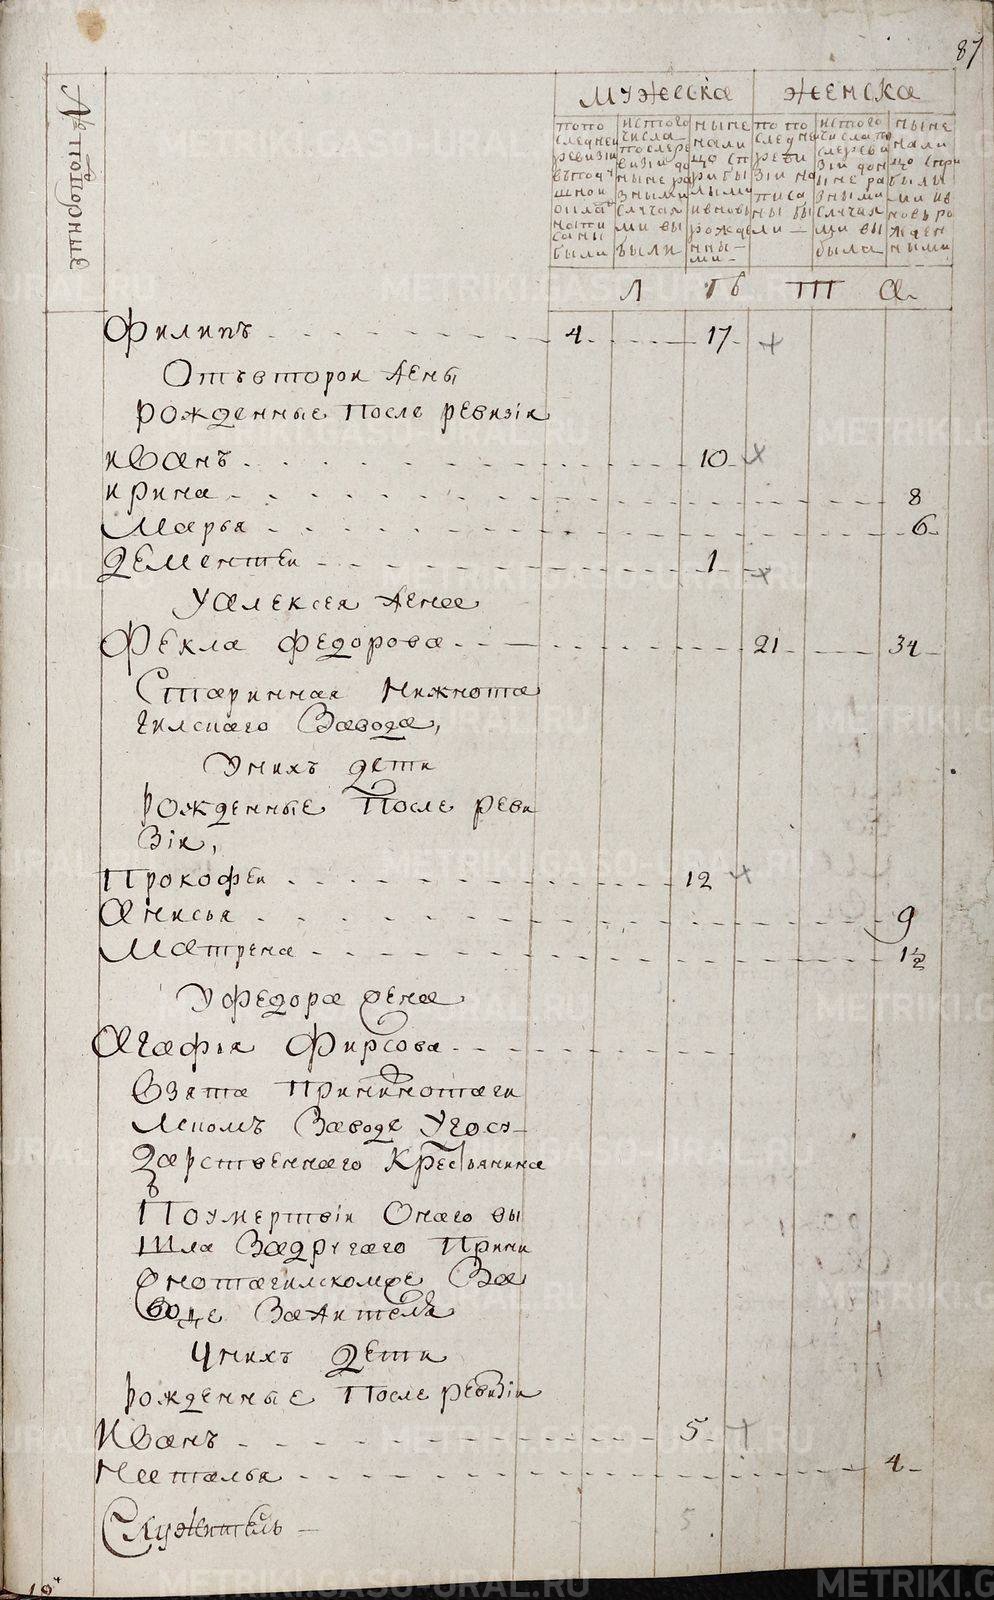 87
№ попорние
мужеска
женска
попо
следней
ревизии
вподу
шной
были
истого
числа
после ре
визiи до
ныне ра
зными
случая
ми вы
были
ныне
нали
цо сп
рибы
лыми
ивновь
рожде
нны
ми
по по
следней
реви
зiи на
писа
ны бы
ли
истого
числа по
слереви
зiи дон
ыне ра
зными
случая
ми вы
была
ныне
нали
цо при
былы
ми ив
новь ро
жден
ными
Л ѣ т а
Филипъ 4 17
Отъ второй жены
рожденные После ревизiи
иванъ 10
ирина 8
Марья 6
дементеи 1
У алексея жена
Фекла федорова 21 34
Старинная Нижнота
гилскаго Завода,
Унихъ дети
рожденные После реви
зiи,
Прокофеи 12
анисья 9
Матрена 1½
У федора жена
агафья Фирсова
Взята Принижнотаги
лскомъ Заводе Угосу
дарственнаго Крестьянина
Поумертвiи Онаго вы
шла Задругаго Прини
жнотагилскомже За
воде Зажителя
Унихъ дети
рожденные После ревизiи
Иванъ 5
Наталья 4
Служитель
5